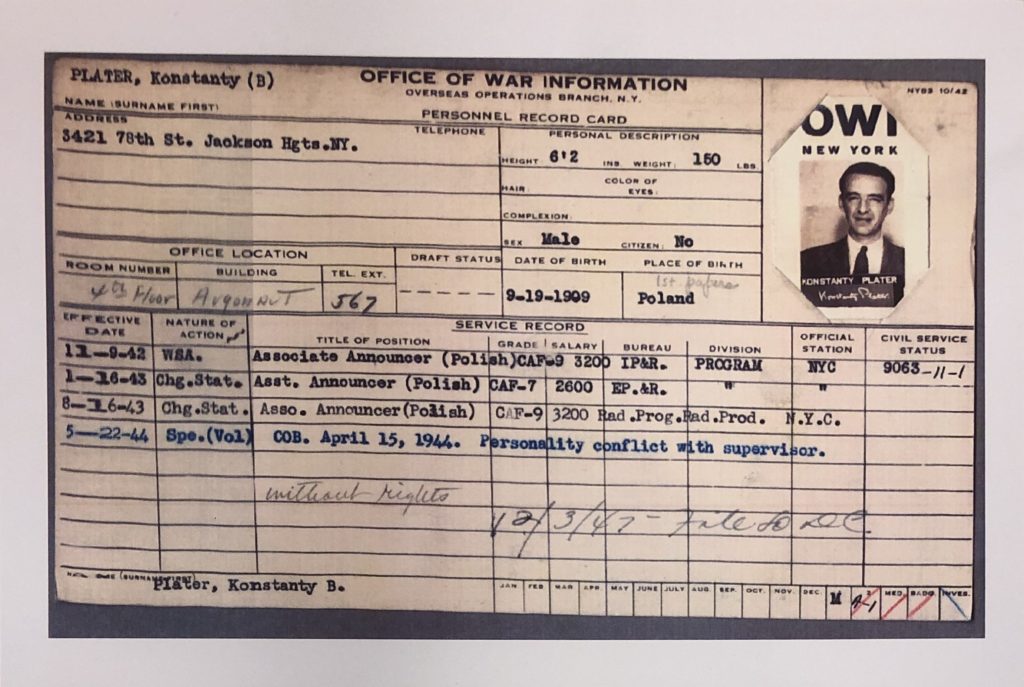 PLATER, Konstanty (B)
OFFICE OF WAR INFORMATION
OVERSEAS OPERATIONS BRANCH, N.Y.
NYBS 10/42
NAME (SURNAME FIRST)
PERSONNEL RECORD CARD
ADDRESS
TELEPHONE
PERSONAL DESCRIPTION
3421 78th St. Jackson Hgts.NY.
HEIGHT 6'2 INS. WEIGHT: 150 LBS.
HAIR: COLOR OF EYES:
COMPLEXION:
SEX Male CITIZEN: No
OWI
NEW YORK
KONSTANTY PLATER
Konstanty Plater
OFFICE LOCATION
DRAFT STATUS
DATE OF BIRTH
PLACE OF BIRTH
ROOM NUMBER BUILDING TEL. EXT.
1st papers
4th Floor Argonaut 567
- - - - - -
9-19-1909
Poland
SERVICE RECORD
EFFECTIVE DATE NATURE OF ACTION TITLE OF POSITION GRADE SALARY BUREAU DIVISION OFFICIAL STATION CIVIL SERVICE STATUS
11-9-42 WSA. Associate Announcer (Polish) CAF-9 3200 IP&R. PROGRAM NYC 9063-11-1
1-16-43 Chg.Stat. Asst. Announcer (Polish) CAF-7 2600 EP.&R. " "
8-16-43 Chg.Stat. Asso. Announcer(Polish) CAF-9 3200 Rad.Prog.Rad.Prod. N.Y.C.
5-22-44 Spe.(Vol) COB. April 15, 1944. Personality conflict with supervisor.
without rights
12/3/47 - File to DC
(SURNAME FIRST)
Plater, Konstanty B.
JAN FEB MAR APR. MAY JUNE JULY AUG. SEP. OCT. NOV. DEC. M A-1 MED. BADG. INVES.